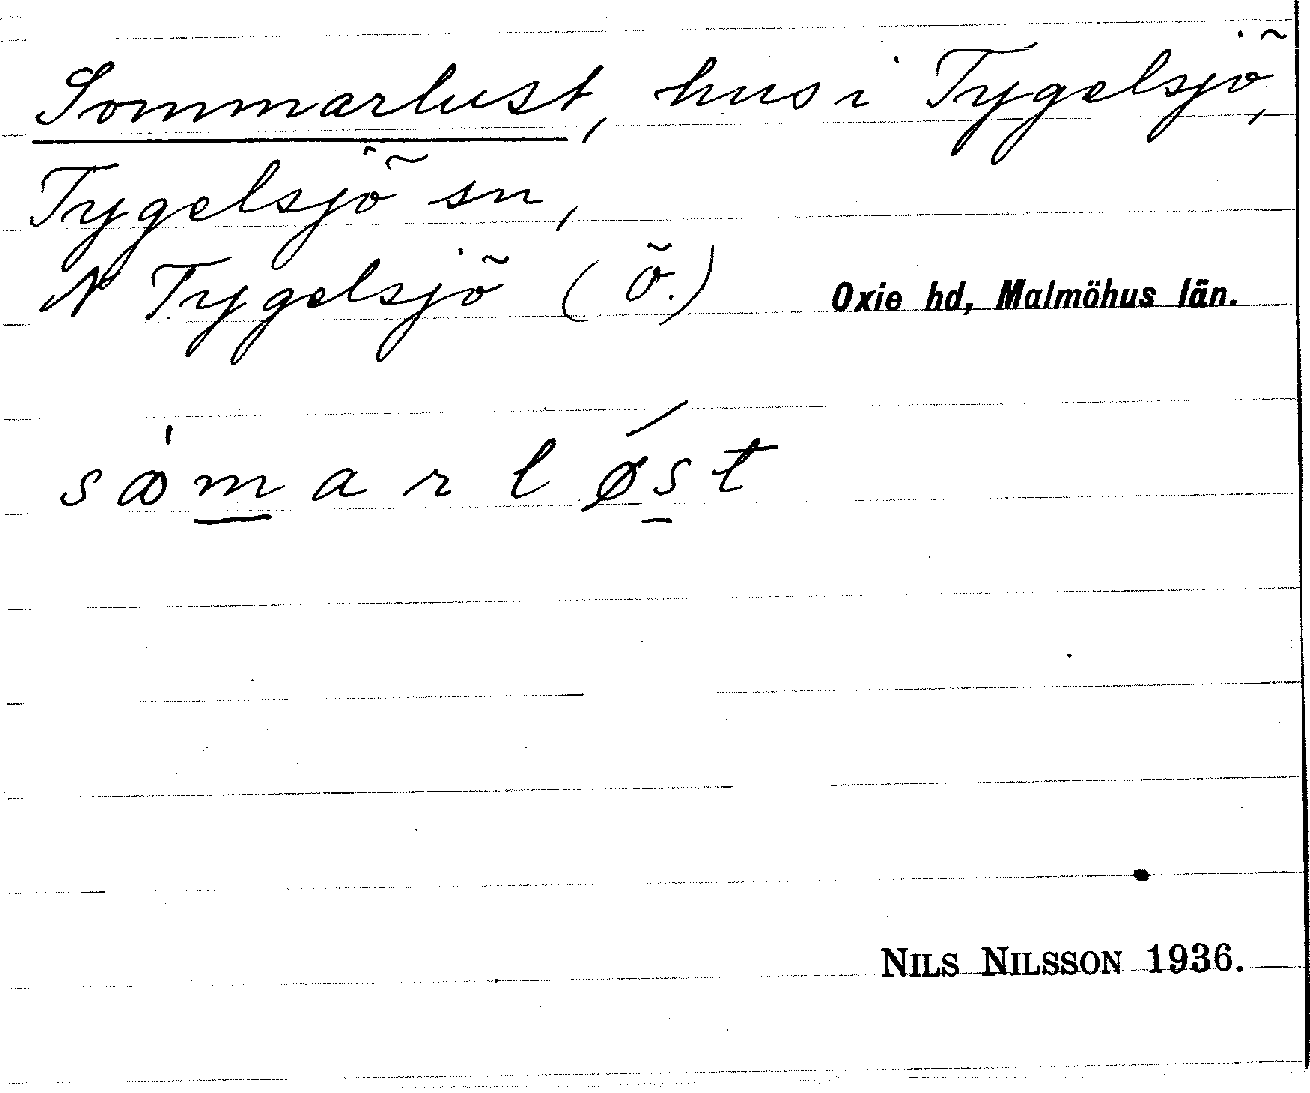 Sommarlust, hus i Tygelsjö,
Tygelsjö sn,
N Tygelsjö (ö.) Oxie hd, Malmöhus län.
NILS NILSSON 1936.